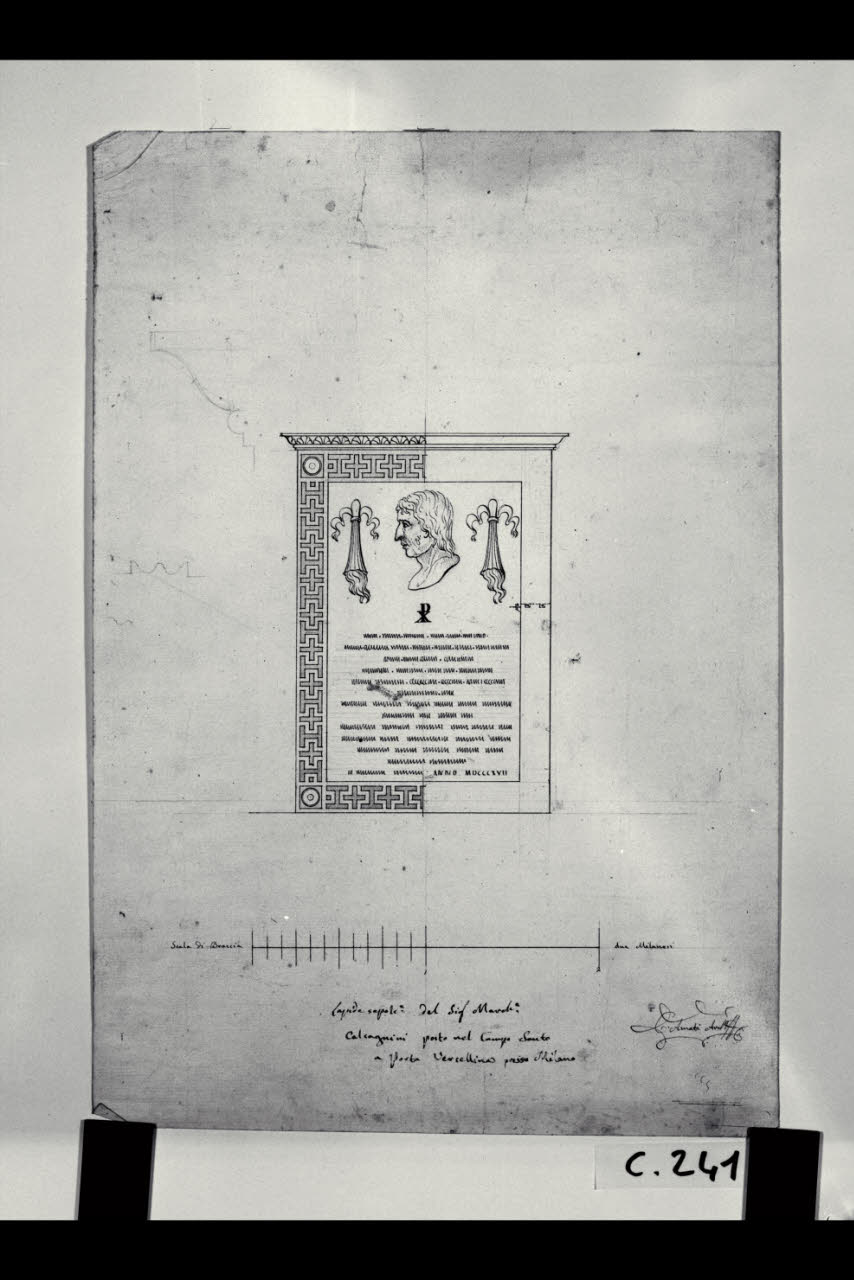 ANNO MDCCCXVII
Scala di Braccia due Milanesi
Lapide sepolc.e del Sig.r March.e
Calcagnini posto nel Campo Santo
a Porta Vercellina presso Milano
Amati
C. 241